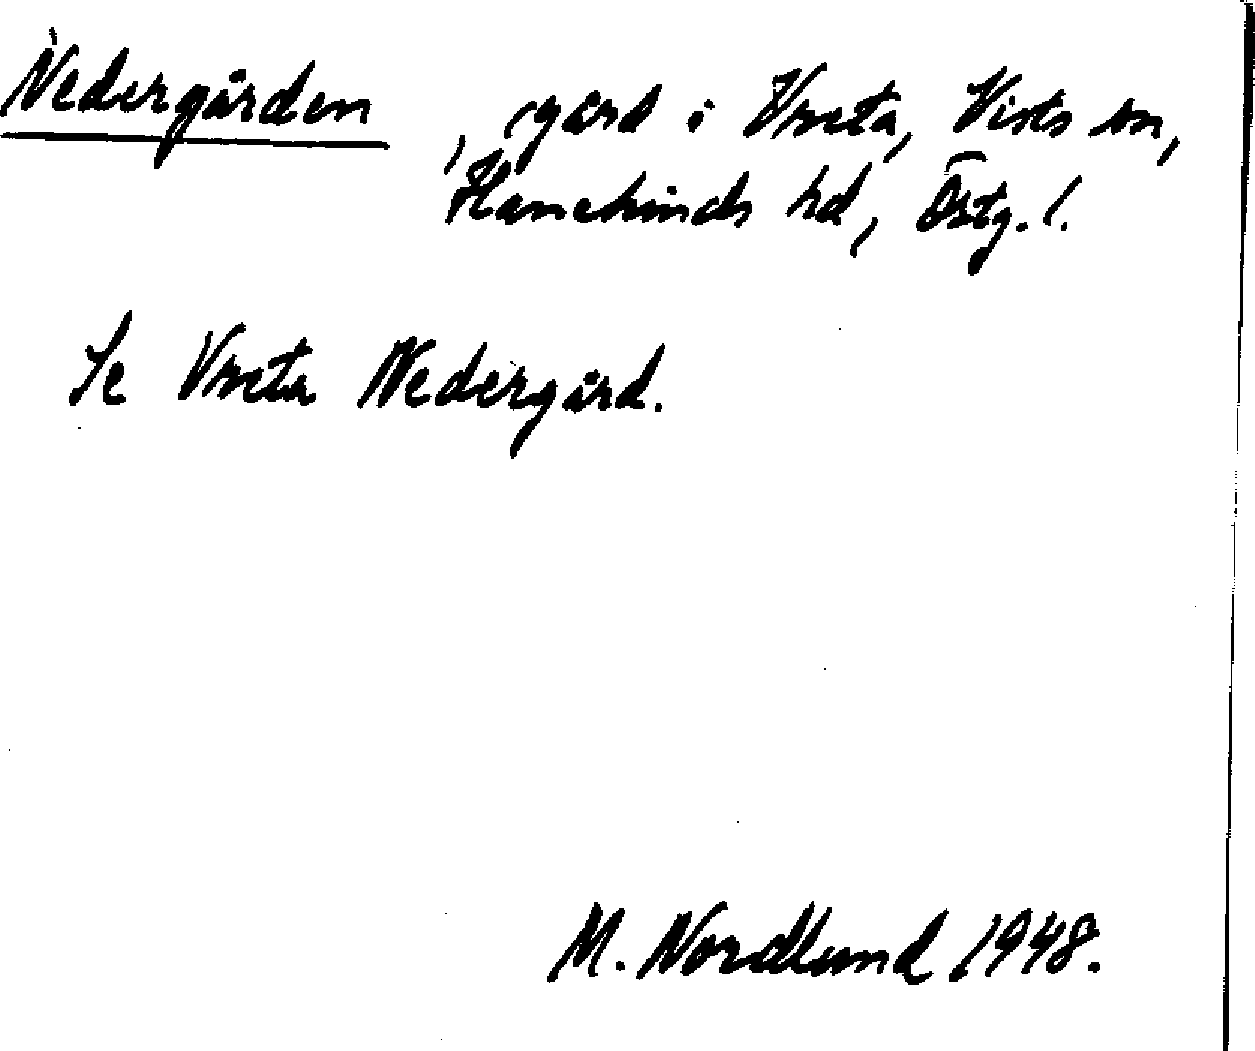 Nedergården, gård i Vreta, Vists sn,
Hanekinds hd, Östg. l.
Se Vreta Nedergård.
M. Nordlund 1948.